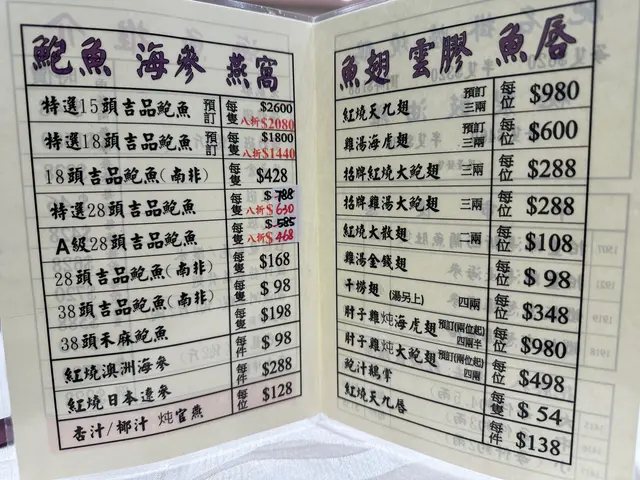 鮑魚 海參 燕窩
特選15頭吉品鮑魚 預訂 每隻 $2600 八折$2080
特選18頭吉品鮑魚 預訂 每隻 $1800 八折$1440
18頭吉品鮑魚(南非) 每隻 $428
特選28頭吉品鮑魚 每隻 $788 八折$630
A級28頭吉品鮑魚 每隻 $585 八折$468
28頭吉品鮑魚(南非) 每隻 $168
38頭吉品鮑魚(南非) 每隻 $98
38頭禾麻鮑魚 每隻 $198
紅燒澳洲海參 每件 $98
紅燒日本遼參 每件 $288
杏汁/椰汁 炖官燕 每位 $128
魚翅 雲膠 魚唇
紅燒天九翅 預訂 三兩 每位 $980
雞湯海虎翅 預訂 三兩 每位 $600
招牌紅燒大鮑翅 三兩 每位 $288
招牌雞湯大鮑翅 三兩 每位 $288
紅燒大散翅 二兩 每位 $108
雞湯金錢翅 每位 $98
干撈翅 (湯另上) 四兩 每位 $348
肘子雞炖海虎翅 預訂(兩位起) 四兩半 每位 $980
肘子雞炖大鮑翅 預訂(兩位起) 四兩 每位 $498
鮑汁鵝掌 每隻 $54
紅燒天九唇 每件 $138